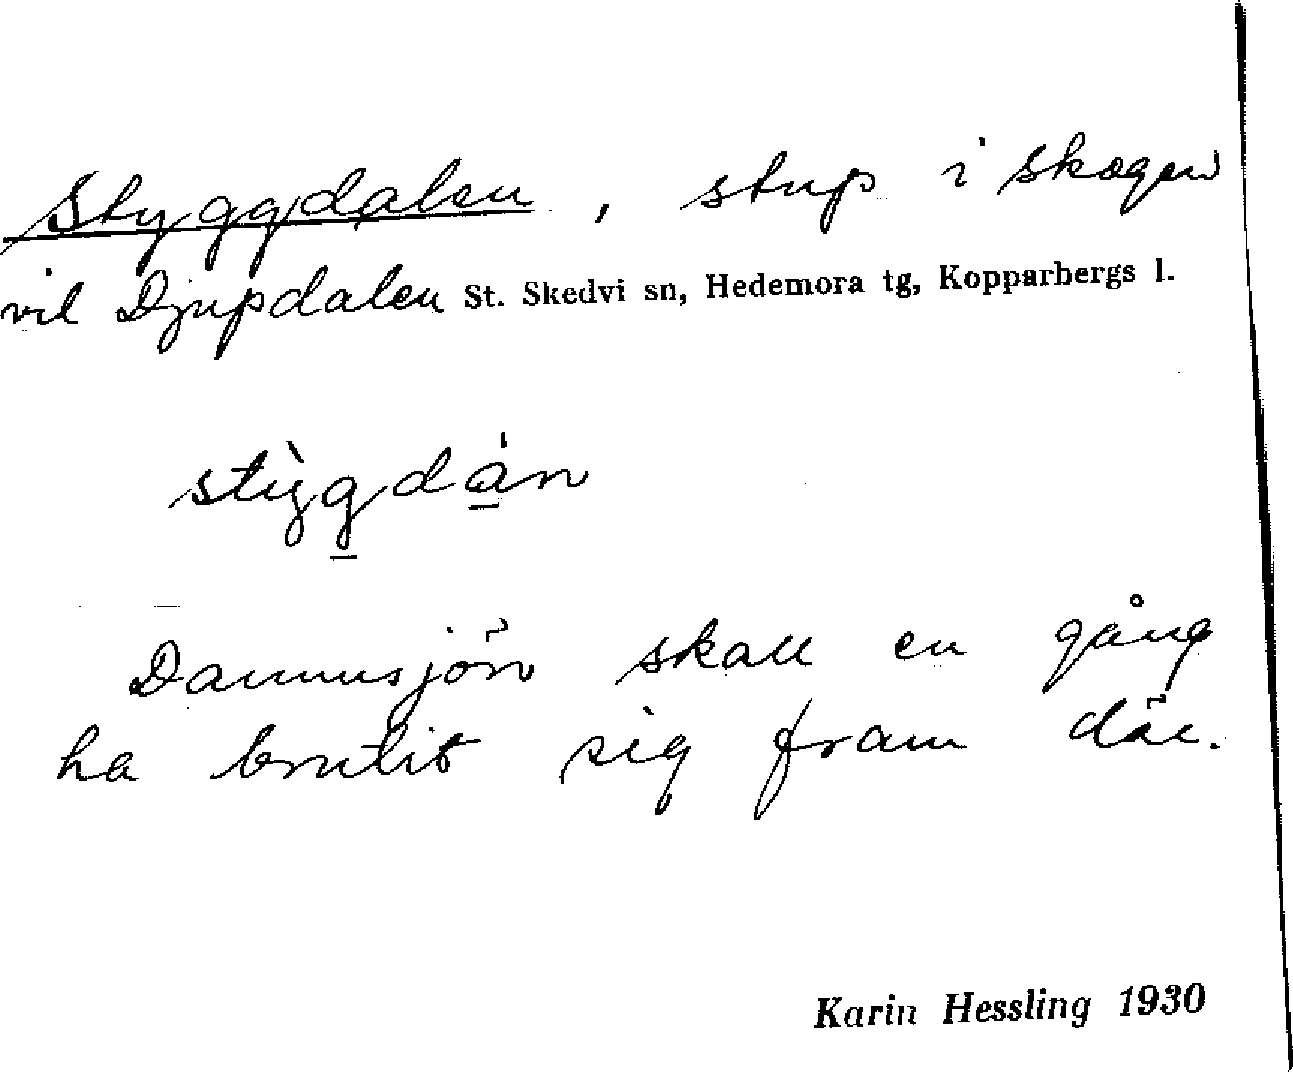 Styggdalen, stup i skogen
vid Djupdalen St. Skedvi sn, Hedemora tg, Kopparbergs l.
stỳgdán
Dammsjön skall en gång
ha brutit sig fram där.
Karin Hessling 1930